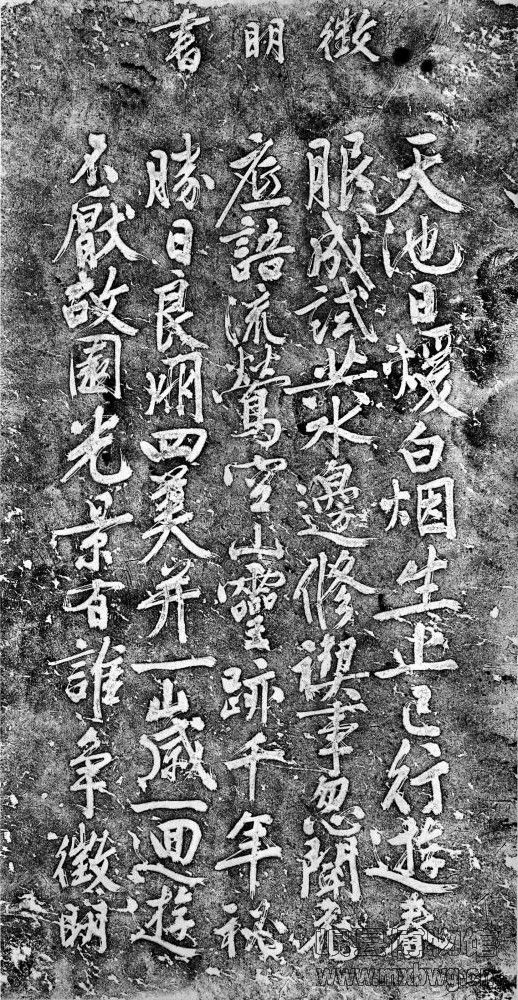 徵明書
天池日煖白烟生上巳行遊春
服成試共水邊修禊事忽聞花
底語流鶯空山靈跡千年祕
勝日良朋四美并一歲一迴遊
不厭故園光景有誰爭徵明